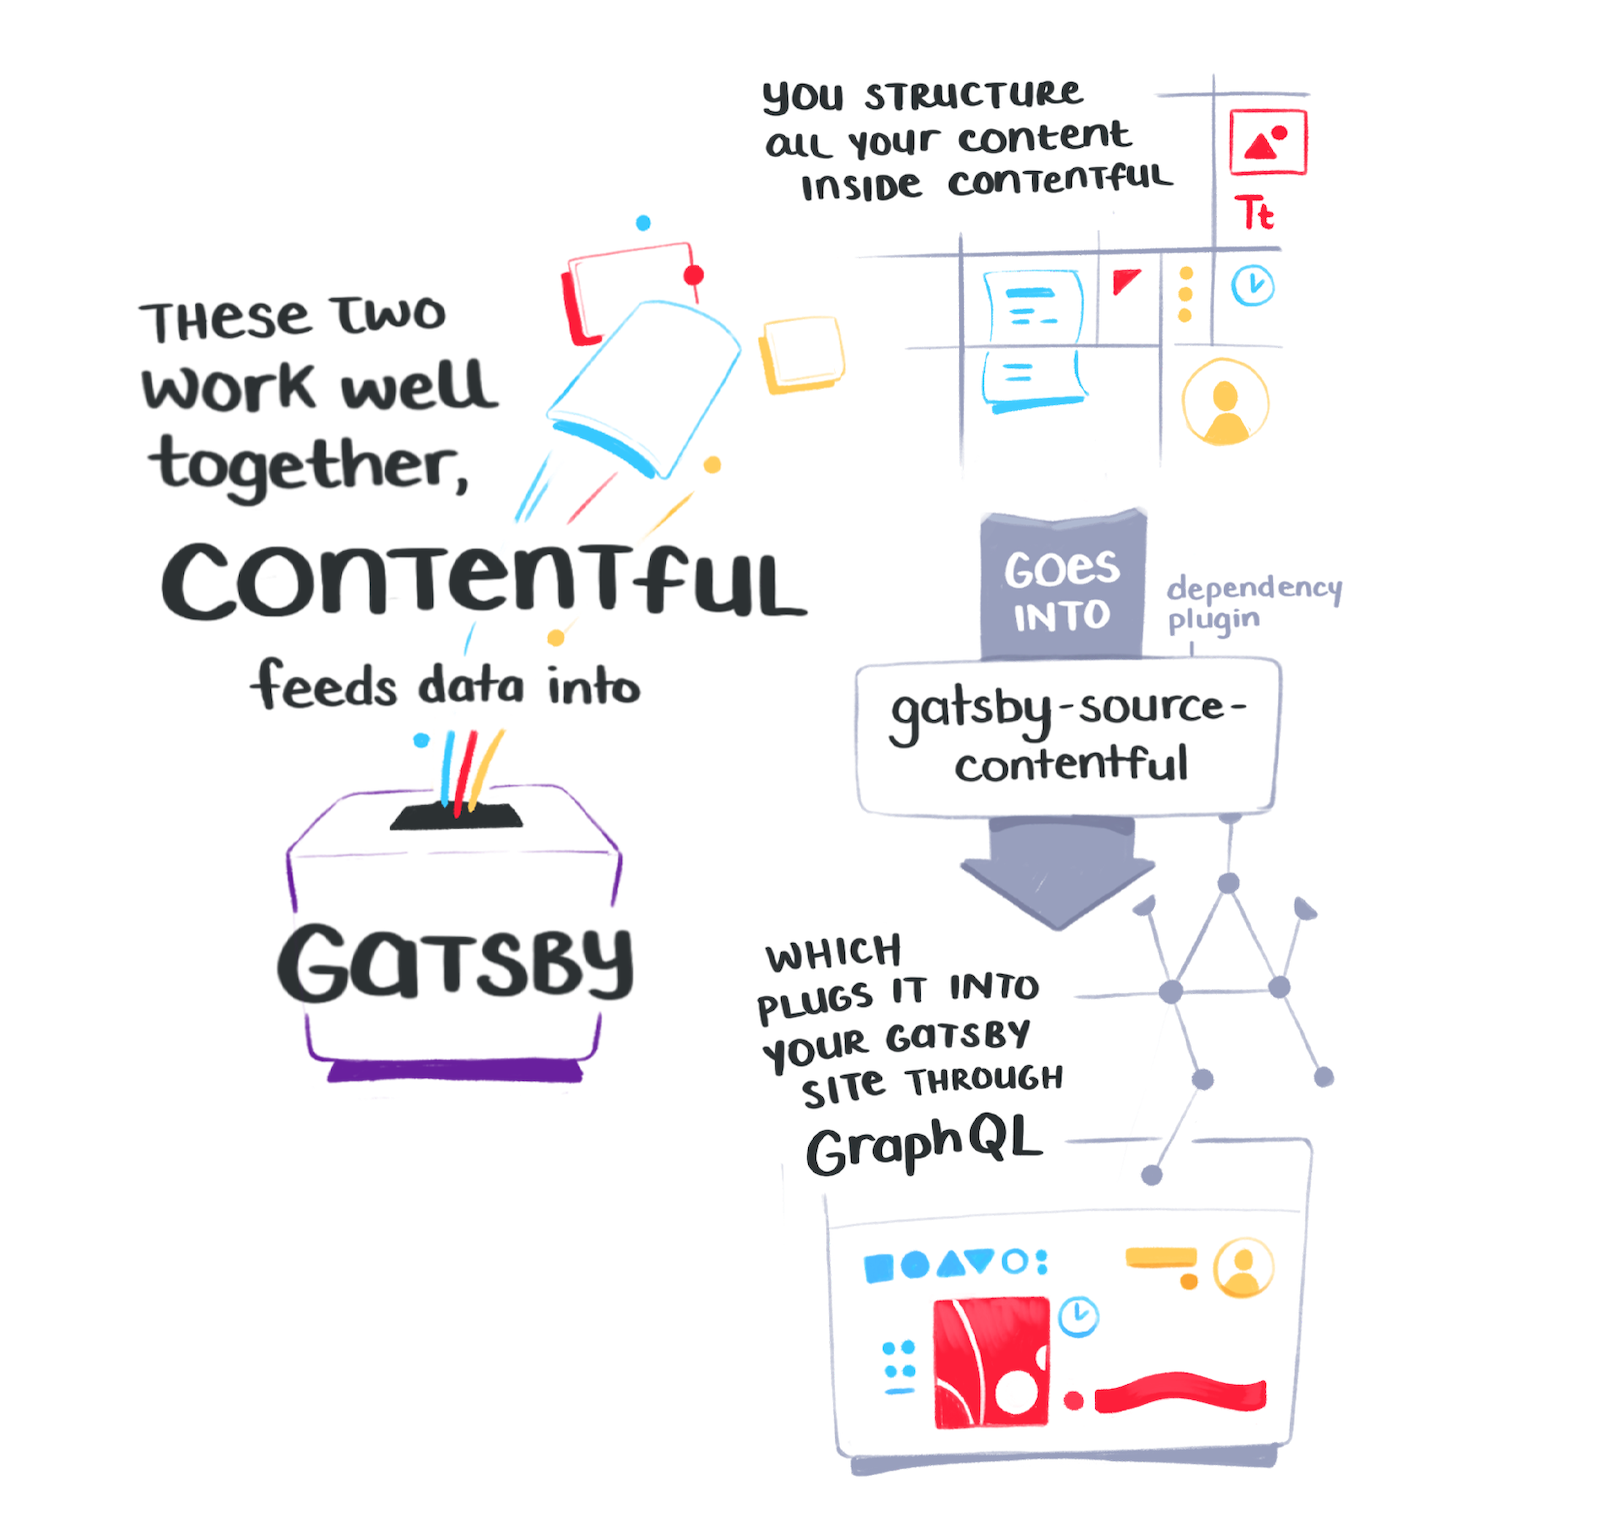 These two
work well
together,
Contentful
feeds data into
Gatsby
You structure
all your content
inside Contentful
Tt
Goes
into
dependency
plugin
gatsby-source-
contentful
Which
plugs it into
your Gatsby
site through
GraphQL